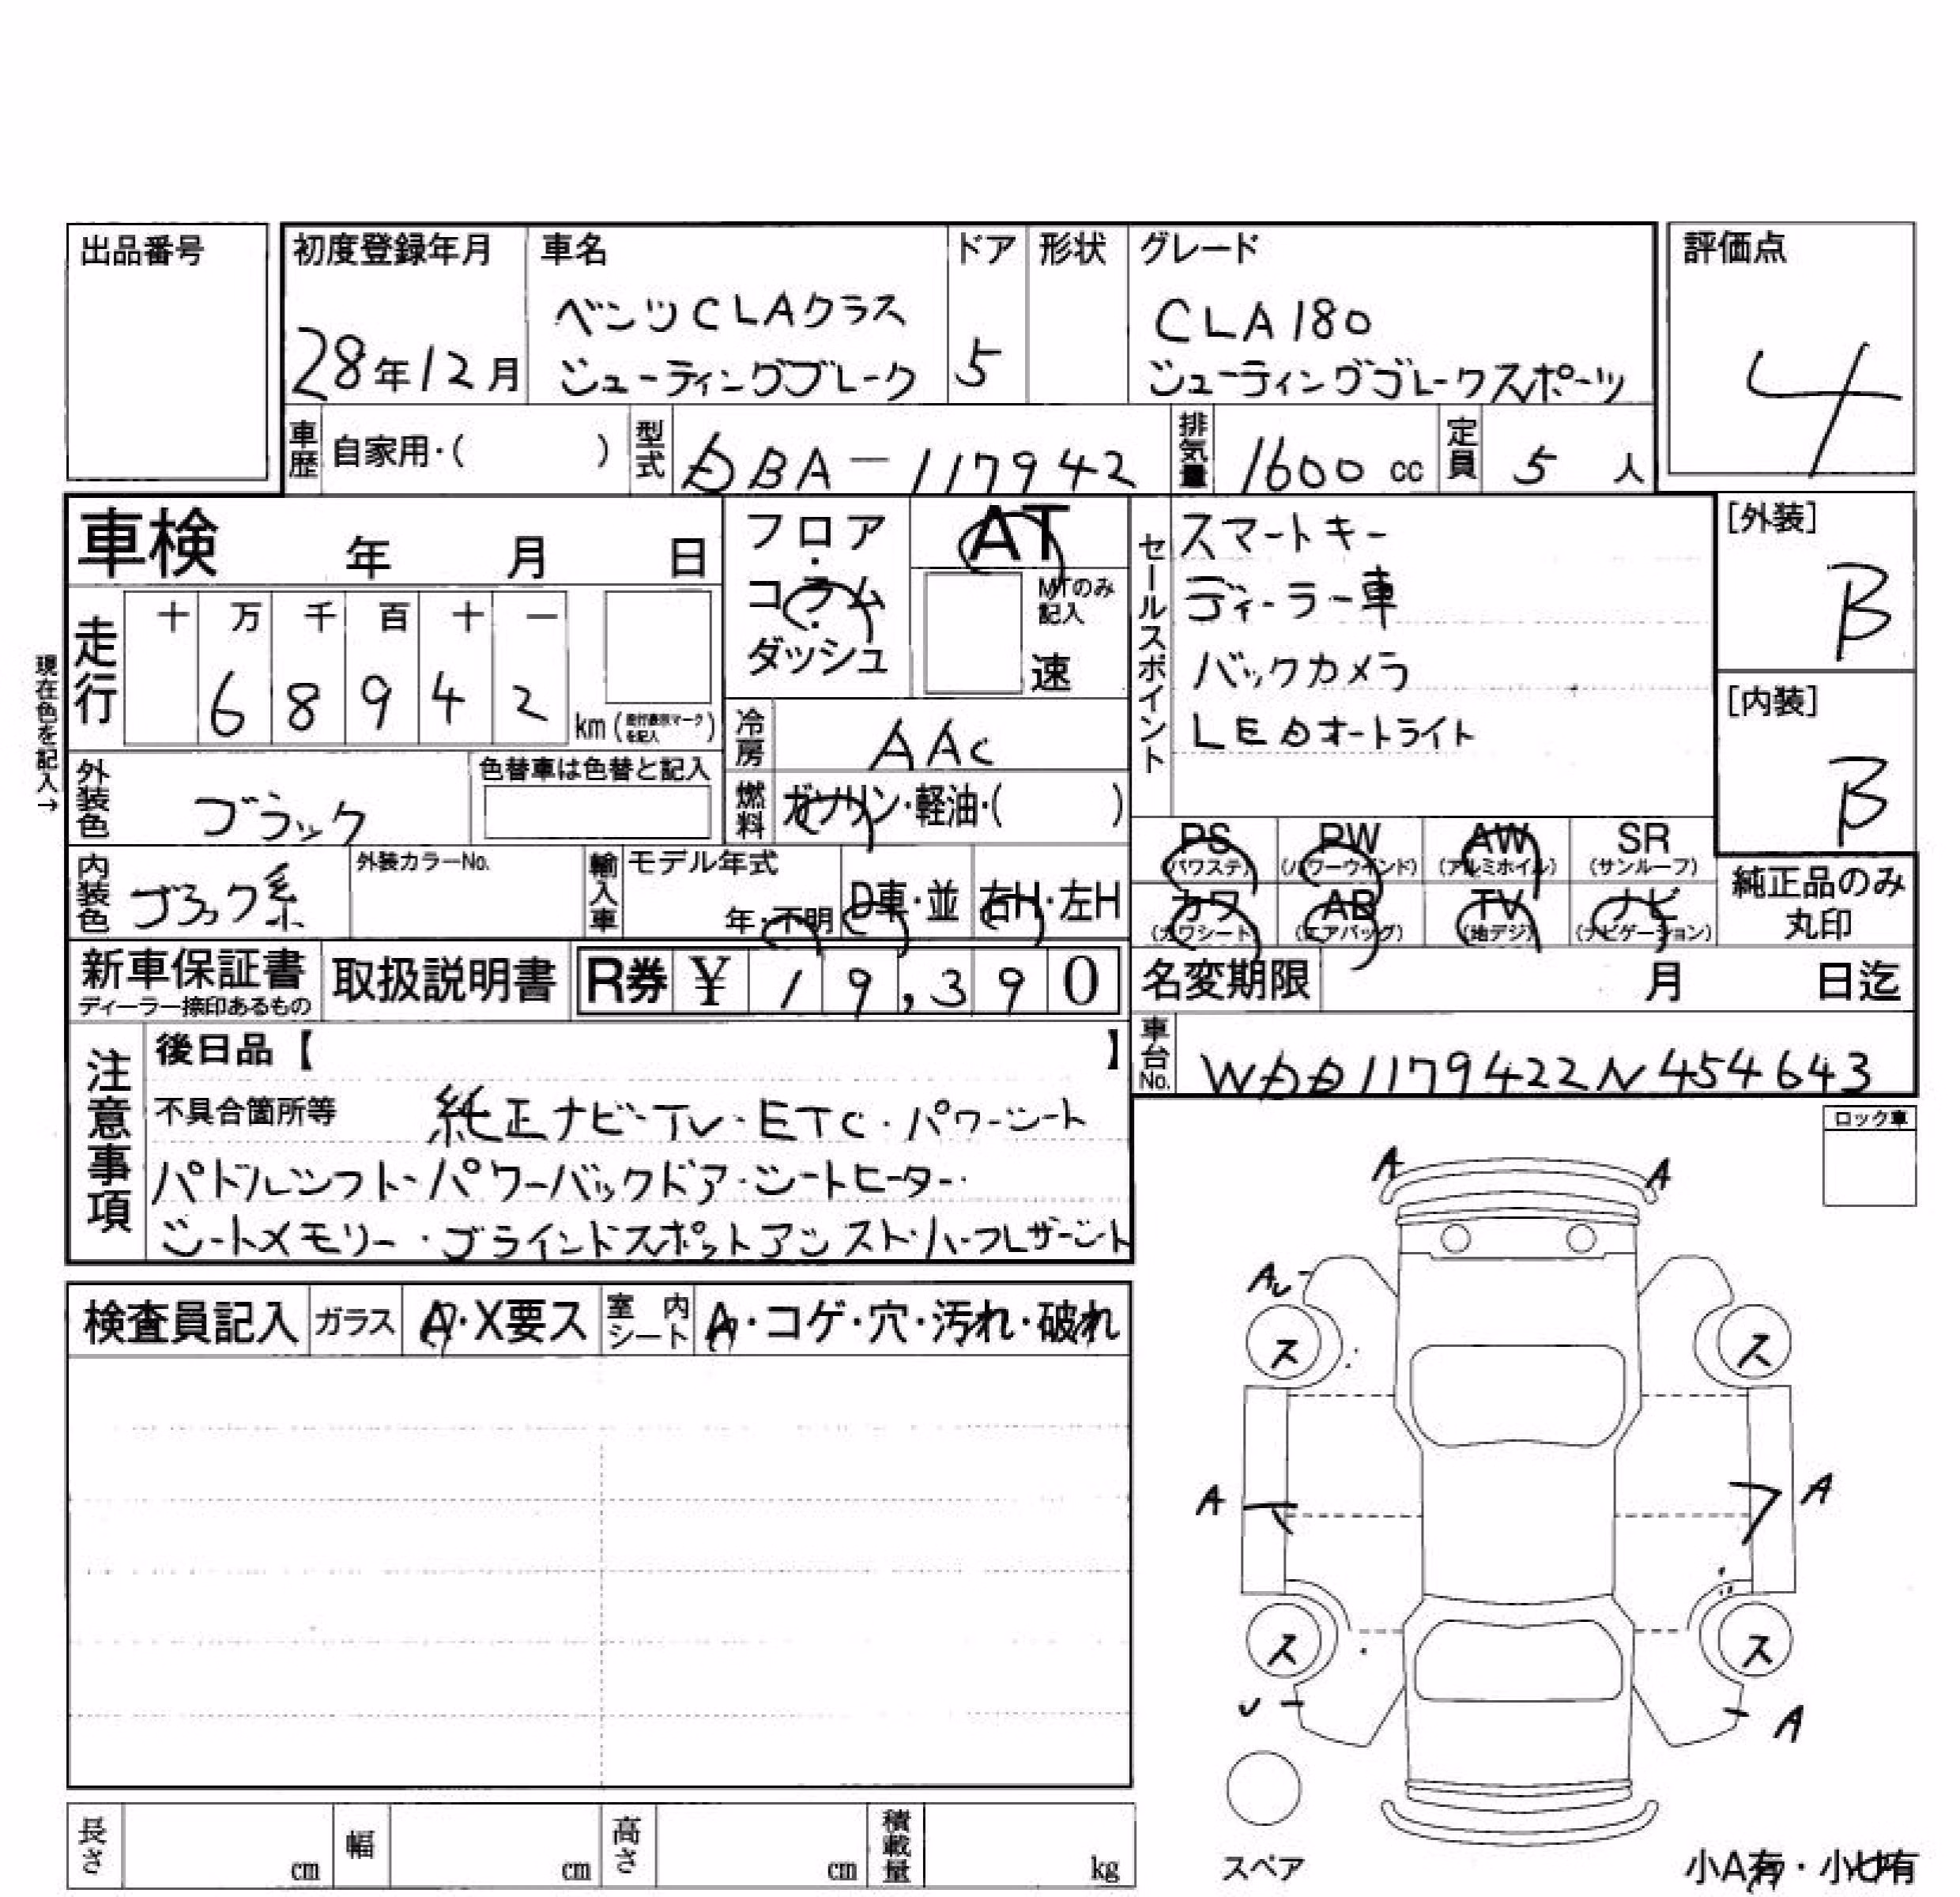 出品番号
初度登録年月
28年12月
車名
ベンツCLAクラス
シューティングブレーク
ドア
5
形状
グレード
CLA180
シューティングブレークスポーツ
評価点
4
車歴 自家用・( )
型式 DBA-117942
排気量 1600 cc
定員 5 人
車検 年 月 日
フロア・コラム・ダッシュ
AT
MTのみ記入
速
セールスポイント
スマートキー
ディーラー車
バックカメラ
LEDオートライト
[外装]
B
[内装]
B
現在色を記入→
走行
十 万 千 百 十 一
6 8 9 4 2
km(走行表示マークを記入)
冷房 AAC
燃料 ガソリン・軽油・( )
外装色 ブラック
色替車は色替と記入
内装色 ブラック系
外装カラーNo.
輸入車
モデル年式
年・不明
D車・並
右H・左H
PS (パワステ)
PW (パワーウインド)
AW (アルミホイル)
SR (サンルーフ)
カワ (カワシート)
AB (エアバッグ)
TV (地デジ)
ナビ (ナビゲーション)
純正品のみ
丸印
新車保証書
ディーラー捺印あるもの
取扱説明書
R券 ¥ 19,390
名変期限 月 日迄
車台No. WDD1179422N454643
注意事項
後日品【 】
不具合箇所等 純正ナビ・TV・ETC・パワーシート
パドルシフト・パワーバックドア・シートヒーター・
シートメモリー・ブラインドスポットアシスト・ハーフレザーシート
ロック車
検査員記入
ガラス A・X要ス
室内シート A・コゲ・穴・汚れ・破れ
A A
A
ス ス
A A
ス ス
A
スペア
小A有・小U有
長さ cm
幅 cm
高さ cm
積載量 kg